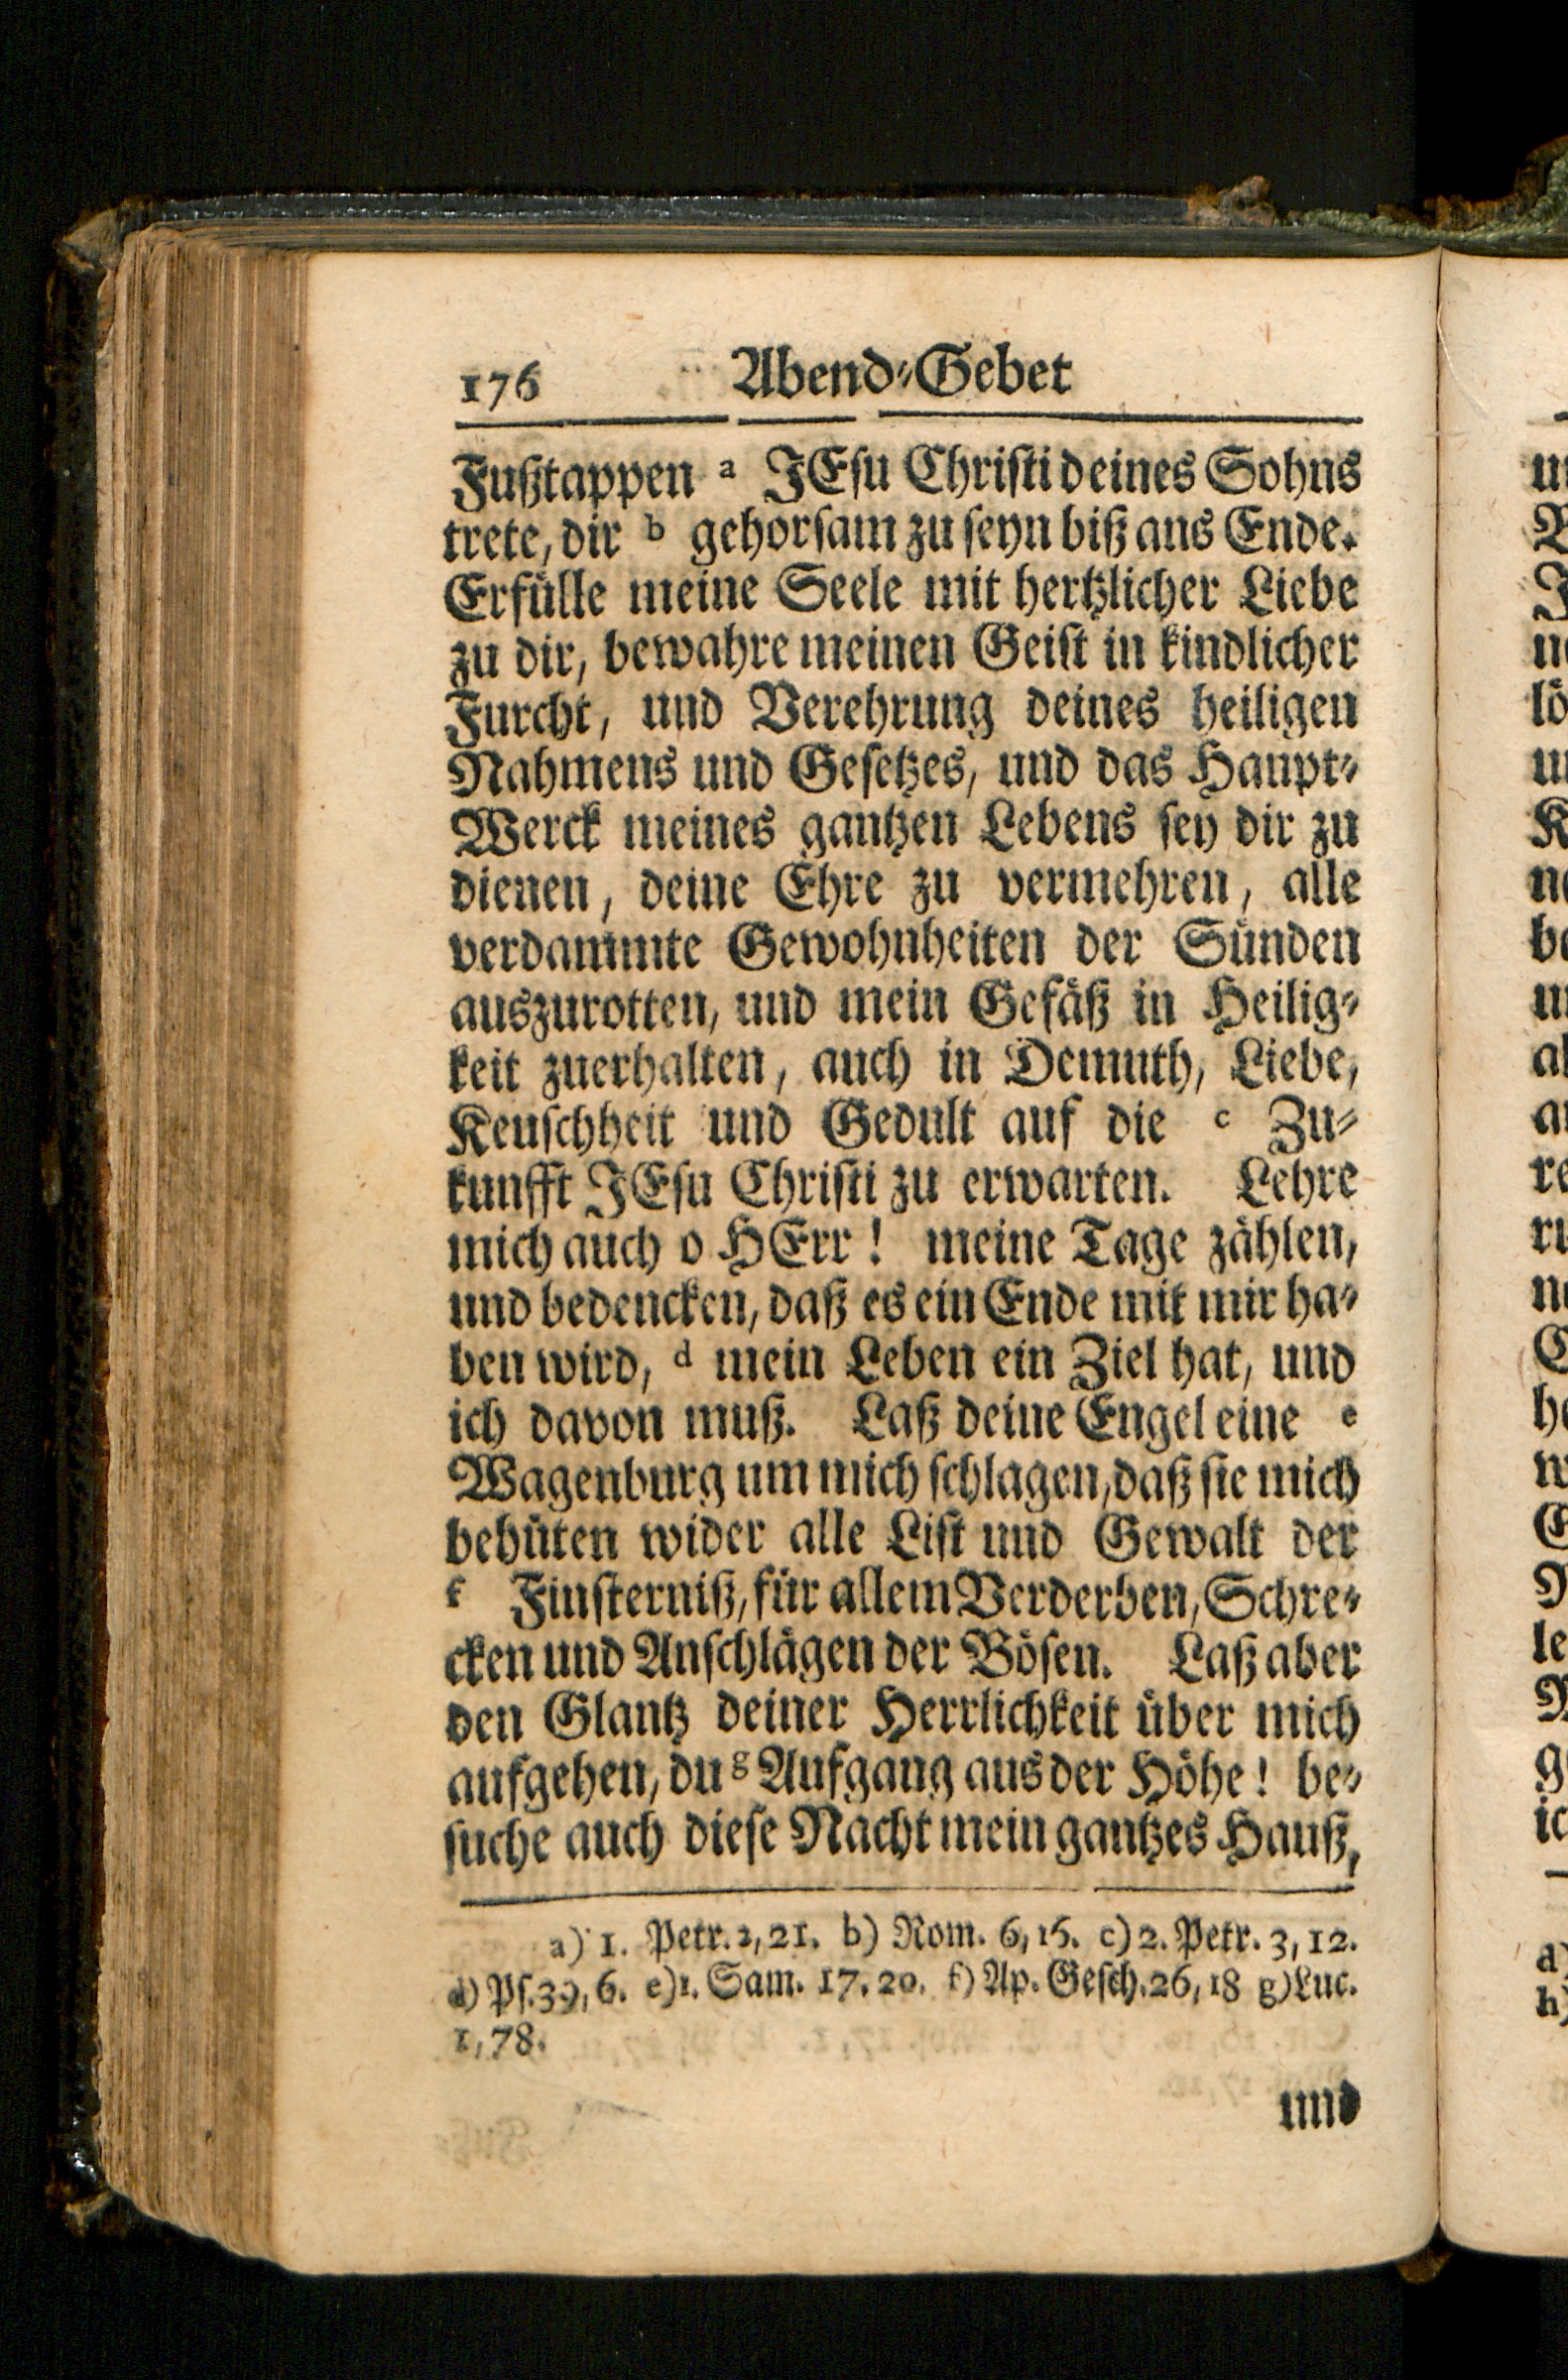 176 Abend-Gebet
Fußtappen a JEsu Christi deines Sohns
trete, dir b gehorsam zu seyn biß ans Ende.
Erfülle meine Seele mit hertzlicher Liebe
zu dir, bewahre meinen Geist in kindlicher
Furcht, und Verehrung deines heiligen
Nahmens und Gesetzes, und das Haupt-
Werck meines gantzen Lebens sey dir zu
dienen, deine Ehre zu vermehren, alle
verdammte Gewohnheiten der Sünden
auszurotten, und mein Gefäß in Heilig-
keit zuerhalten, auch in Demuth, Liebe,
Keuschheit und Gedult auf die c Zu-
kunfft JEsu Christi zu erwarten. Lehre
mich auch o HErr! meine Tage zählen,
und bedencken, daß es ein Ende mit mir ha-
ben wird, d mein Leben ein Ziel hat, und
ich davon muß. Laß deine Engel eine e
Wagenburg um mich schlagen, daß sie mich
behüten wider alle List und Gewalt der
f Finsterniß, für allem Verderben, Schre-
cken und Anschlägen der Bösen. Laß aber
den Glantz deiner Herrlichkeit über mich
aufgehen, du g Aufgang aus der Höhe! be-
suche auch diese Nacht mein gantzes Hauß,
a) 1. Petr. 2, 21. b) Rom. 6, 16. c) 2. Petr. 3, 12.
d) Ps. 39, 6. e) 1. Sam. 17. 20. f) Ap. Gesch. 26, 18 g) Luc.
1, 78.
und